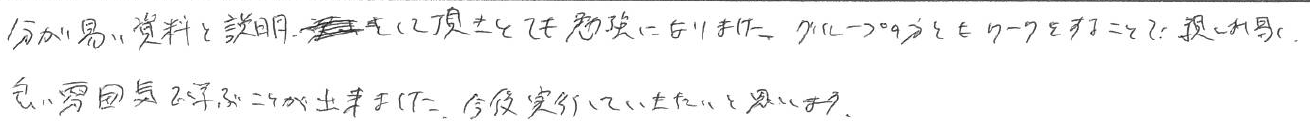 分かり易い資料と説明をして頂きとても勉強になりました。グループの方ともワークをすることで、親しみ易く、
良い雰囲気で学ぶことが出来ました。今後実行していきたいと思います。